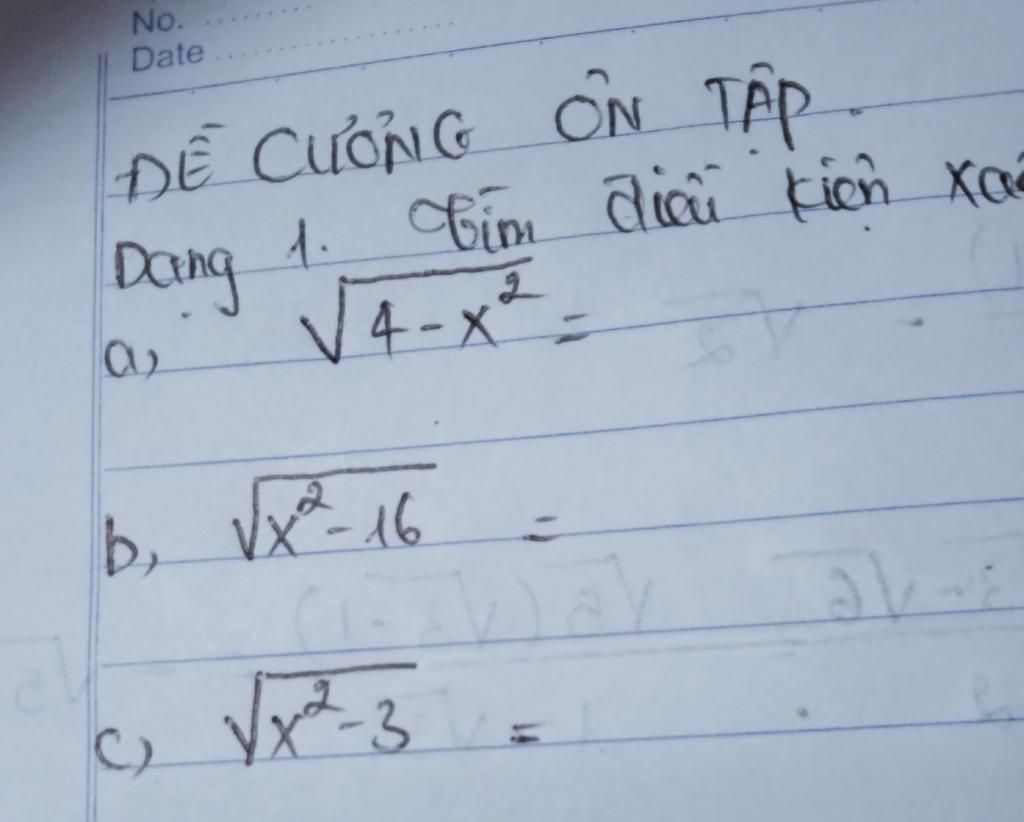 No.
Date
ĐỀ CƯƠNG ÔN TẬP.
Dạng 1. Tìm điều kiện
a, √(4-x²) =
b, √(x²-16) =
c) √(x²-3) =